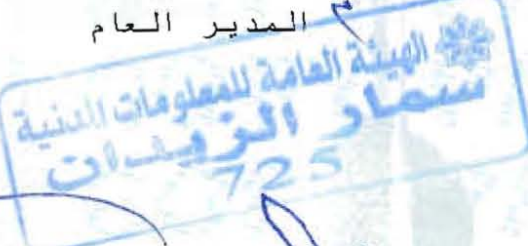 المدير العام
الهيئة العامة للمعلومات المدنية
سمار الزيدات
725